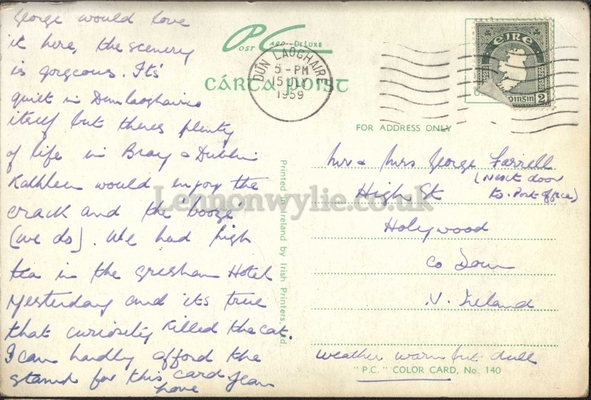 George would love
it here, the scenery
is gorgeous. Its'
quiet in Dunlaoghaire
itself but theres plenty
of life in Bray & Dublin
Kathleen would enjoy the
crack and the booze
(we do). We had high
tea in the Gresham Hotel
yesterday and its true
that curiosity killed the cat.
I can hardly afford the
stamp for this card Jean
Love
POST CARD DELUXE
CÁRTA POIST
DÚN LAOGHAIRE
5 - PM
15 JLY
1959
EIRE
2
FOR ADDRESS ONLY
Mr & Mrs George Farrell
(Next door
to Post office)
High St
Holywood
Co Down
N. Ireland
weather warm but dull
"P.C." COLOR CARD, No. 140
Printed in Ireland by Irish Printers Ltd.
Lennonwylie.co.uk